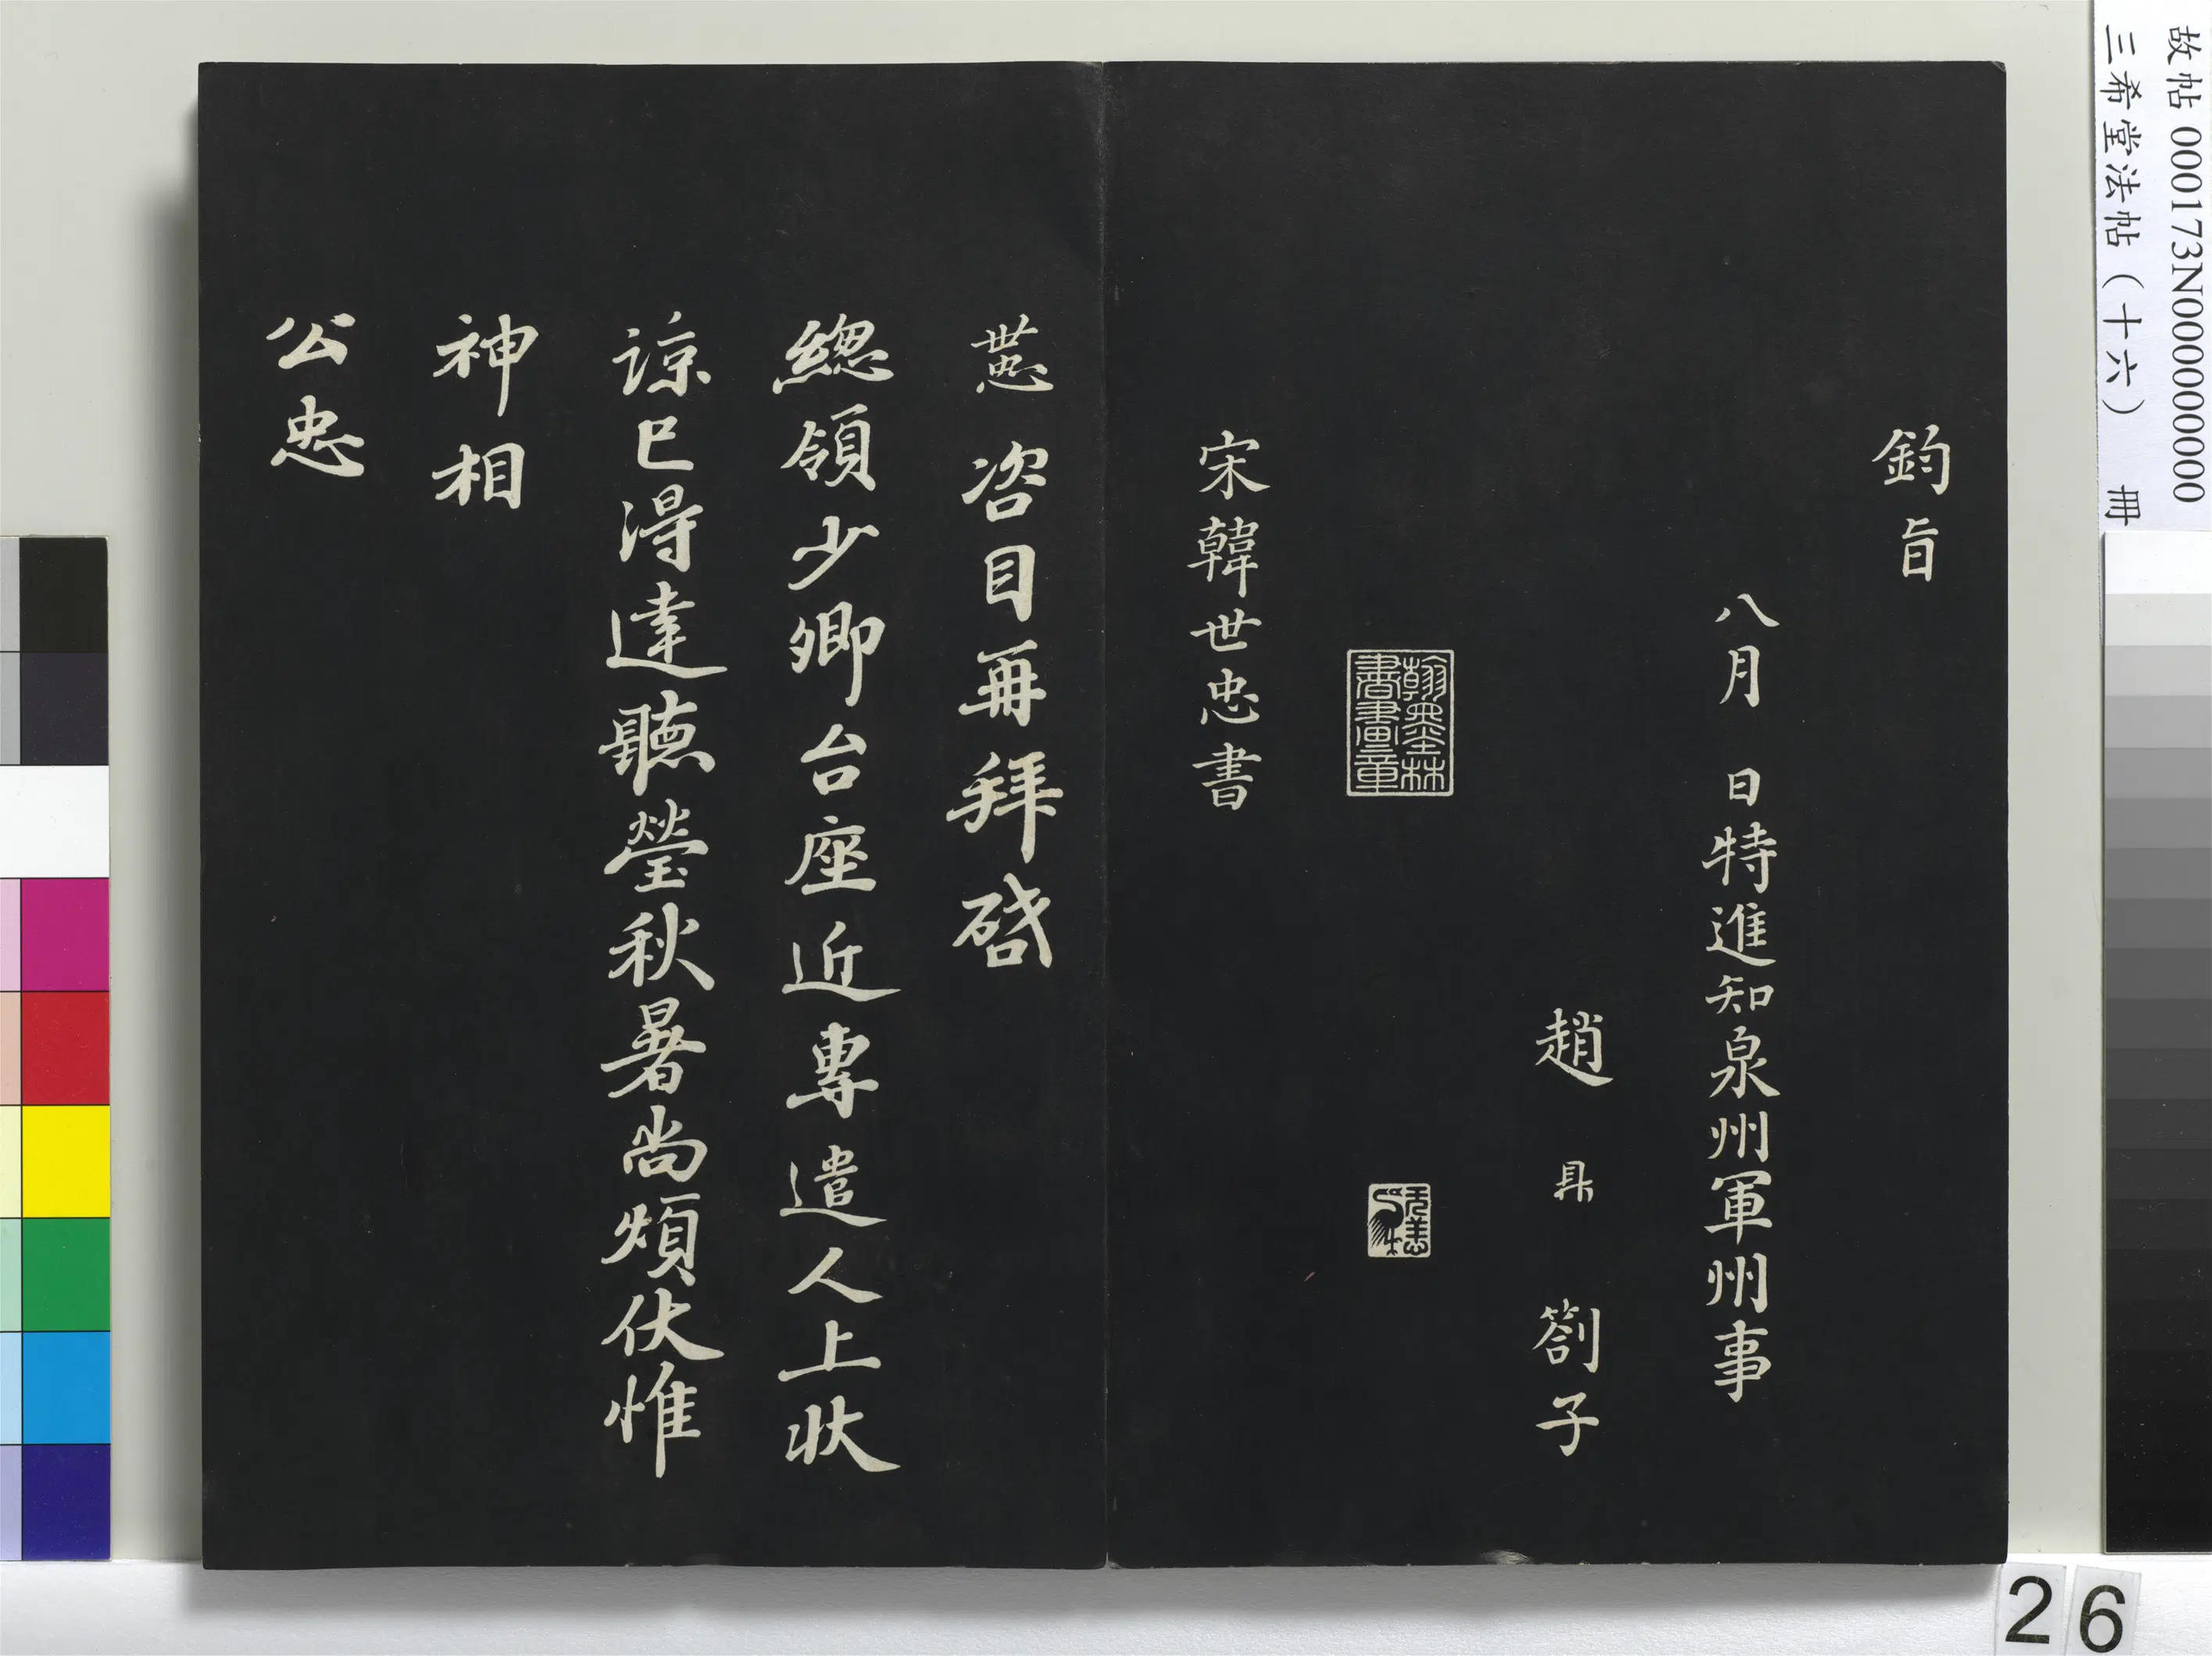 故帖 000173N000000000
三希堂法帖（十六） 冊
鈞旨
八月 日特進知泉州軍州事
趙 鼎 劄子
翰墨林書畫章
宋韓世忠書
世忠咨目再拜啓
總領少卿台座近專遣人上狀
諒已得達聽瑩秋暑尚煩伏惟
神相
公忠
26